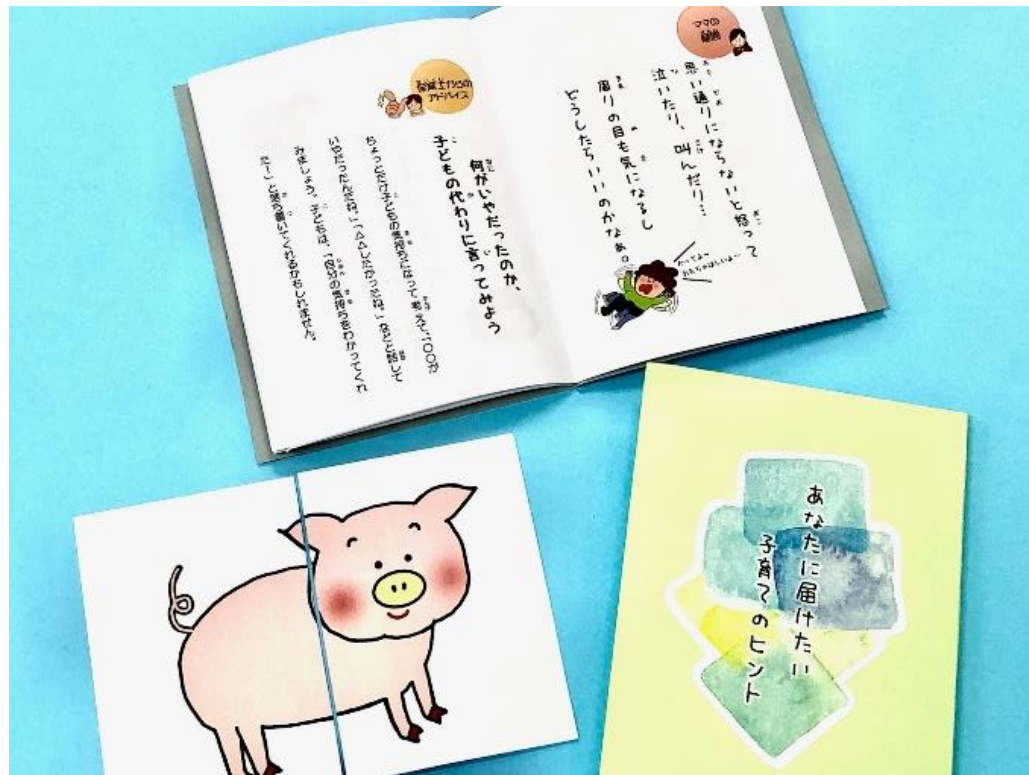 ママの
思い通りにならないと怒って
泣いたり、叫んだり…
周りの目も気になるし
どうしたらいいのかなぁ。
アドバイス
何がいやだったのか、
子どもの代わりに言ってみよう
ちょっとだけ子どもの気持ちになって考えて、「○○が
いやだったんだね。」「△△したかったね。」などと話して
みましょう。子どもは、「自分の気持ちをわかってくれ
た!」と落ち着いてくれるかもしれません。
あなたに届けたい
子育てのヒント